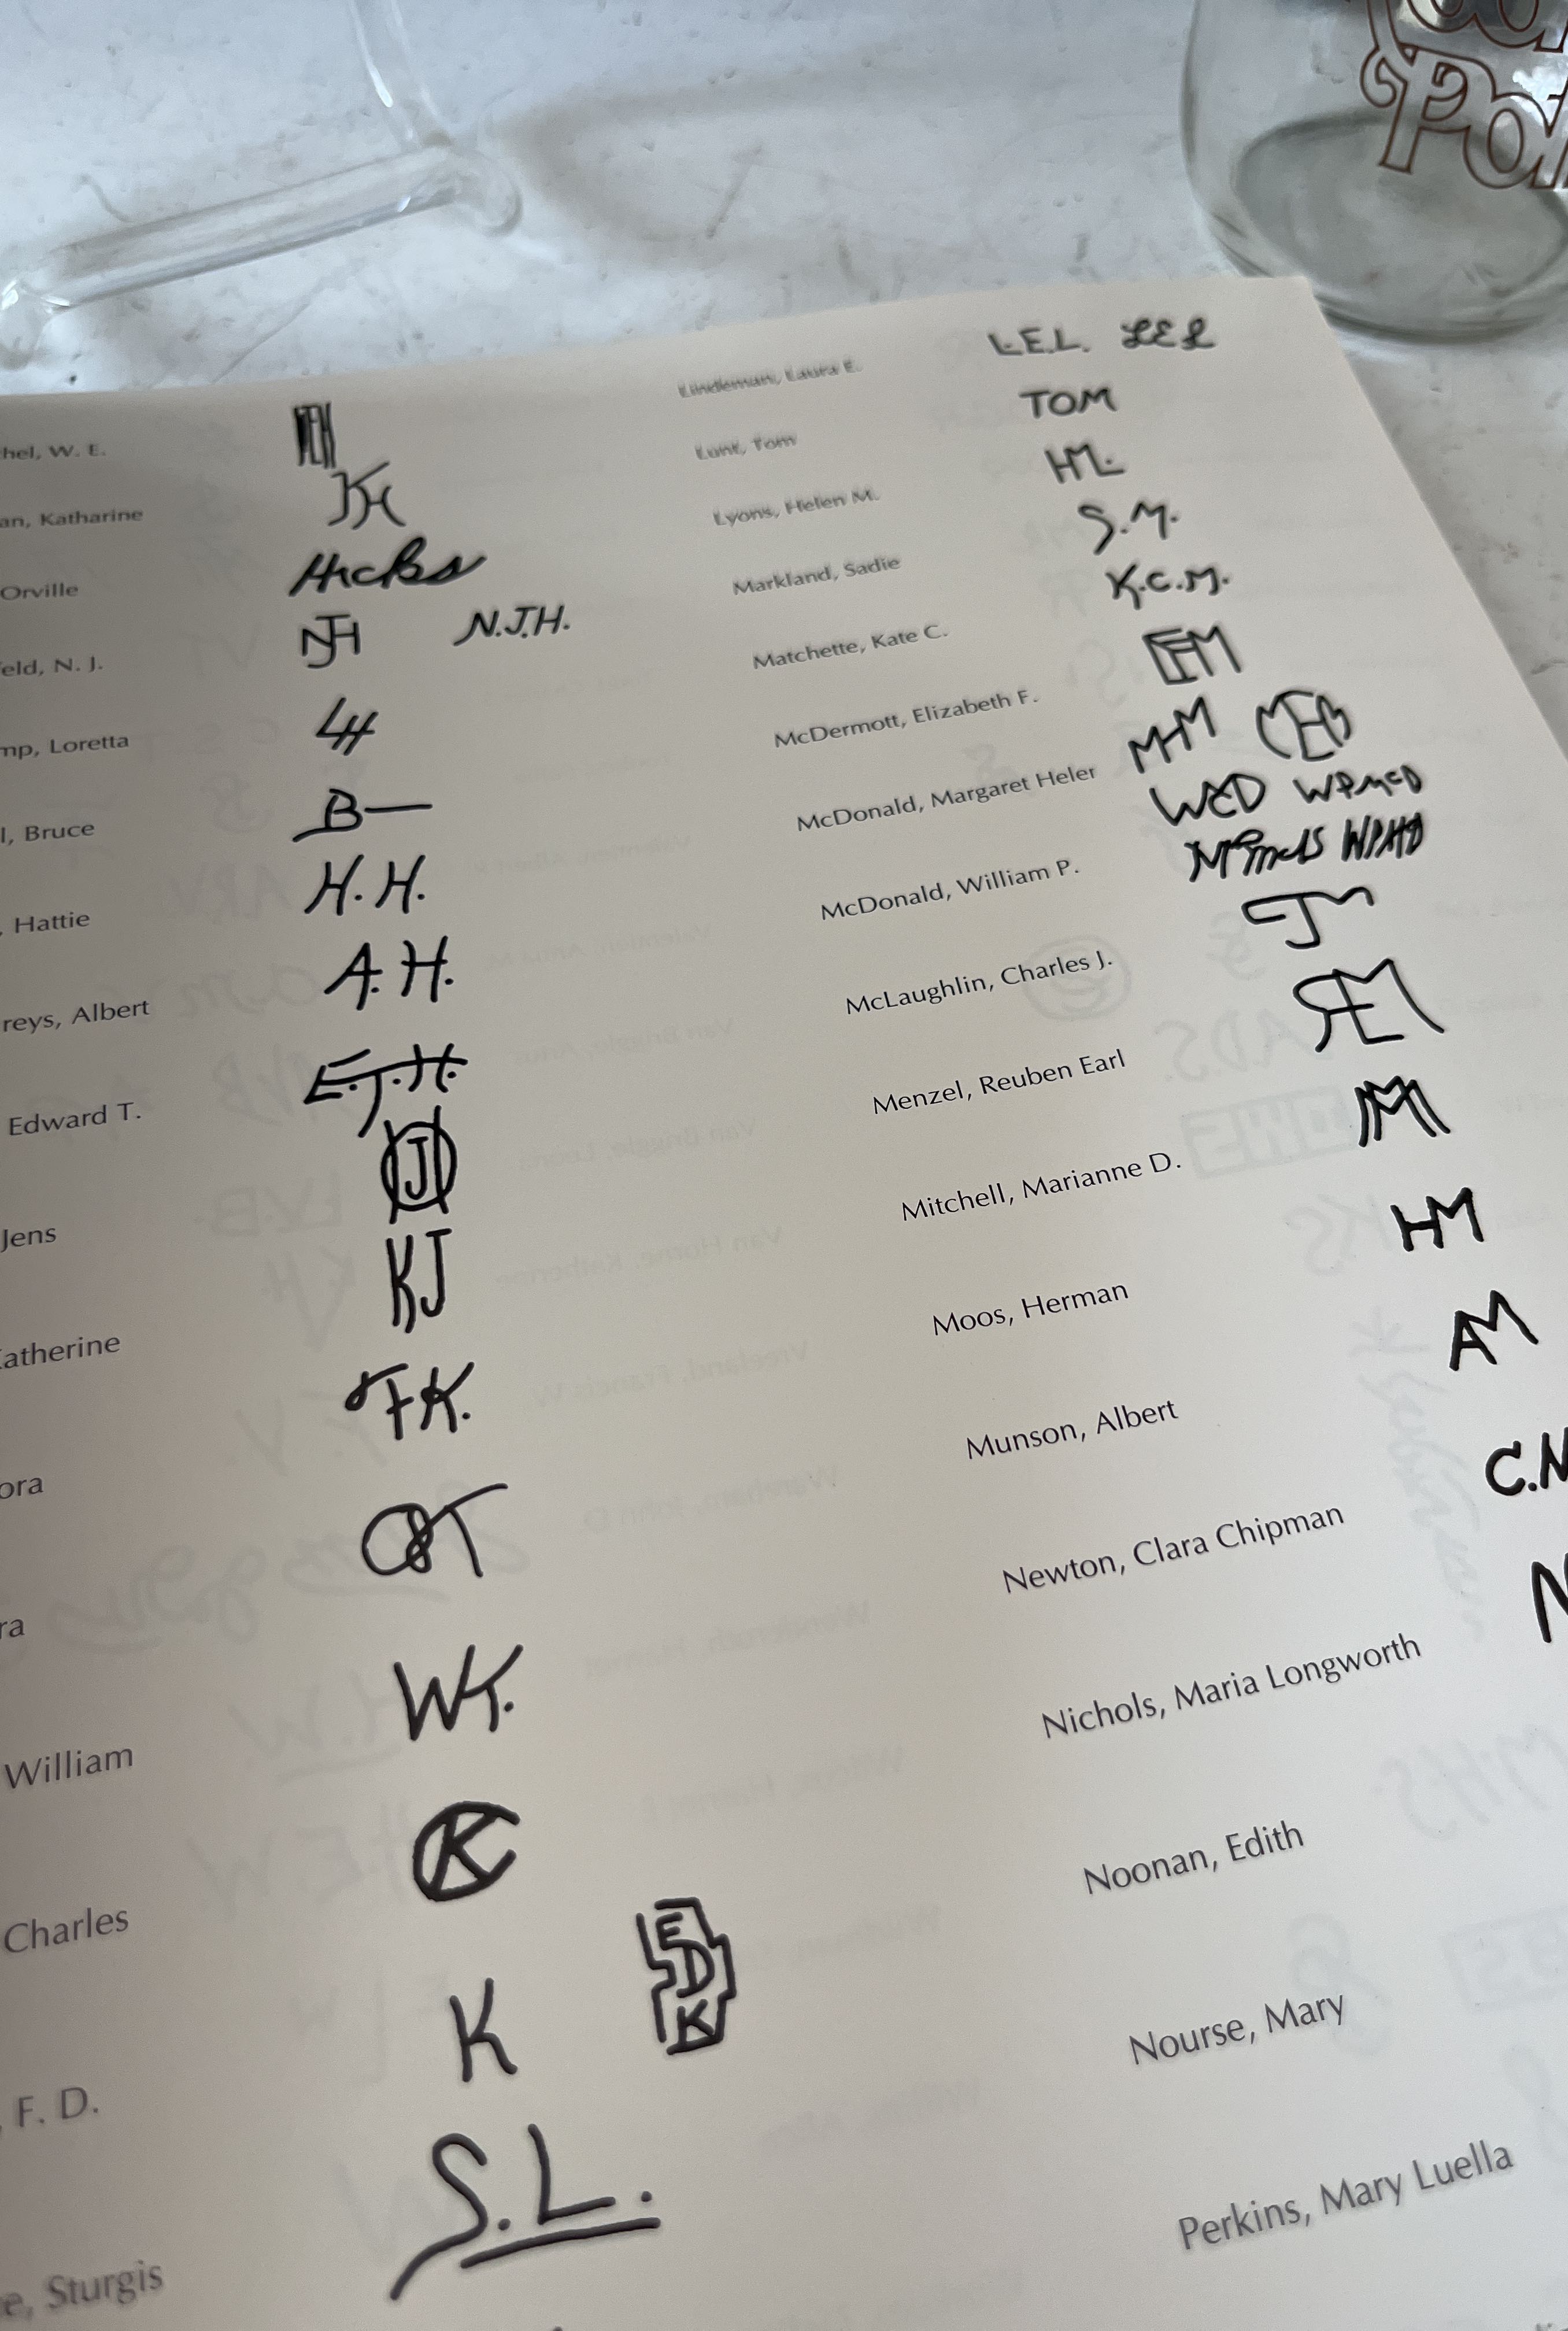 L.E.L. LEL
Lindeman, Laura E.
TOM
Lunt, Tom
HML
Lyons, Helen M.
S.M.
Markland, Sadie
K.C.M.
Matchette, Kate C.
EFM
McDermott, Elizabeth F.
MHM
McDonald, Margaret Heler
WPMCD
McDonald, William P.
McLaughlin, Charles J.
REM
Menzel, Reuben Earl
Mitchell, Marianne D.
HM
Moos, Herman
AM
Munson, Albert
C.N
Newton, Clara Chipman
N
Nichols, Maria Longworth
Noonan, Edith
Nourse, Mary
Perkins, Mary Luella
hel, W. E.
WEH
an, Katharine
KH
Orville
Hicks
eld, N. J.
NJH N.J.H.
mp, Loretta
LH
l, Bruce
B
, Hattie
H. H.
reys, Albert
A. H.
Edward T.
E.T.H.
Jens
J
atherine
KJ
ora
FK.
ra
William
WK.
Charles
CK
, F. D.
K EDK
e, Sturgis
S. L.